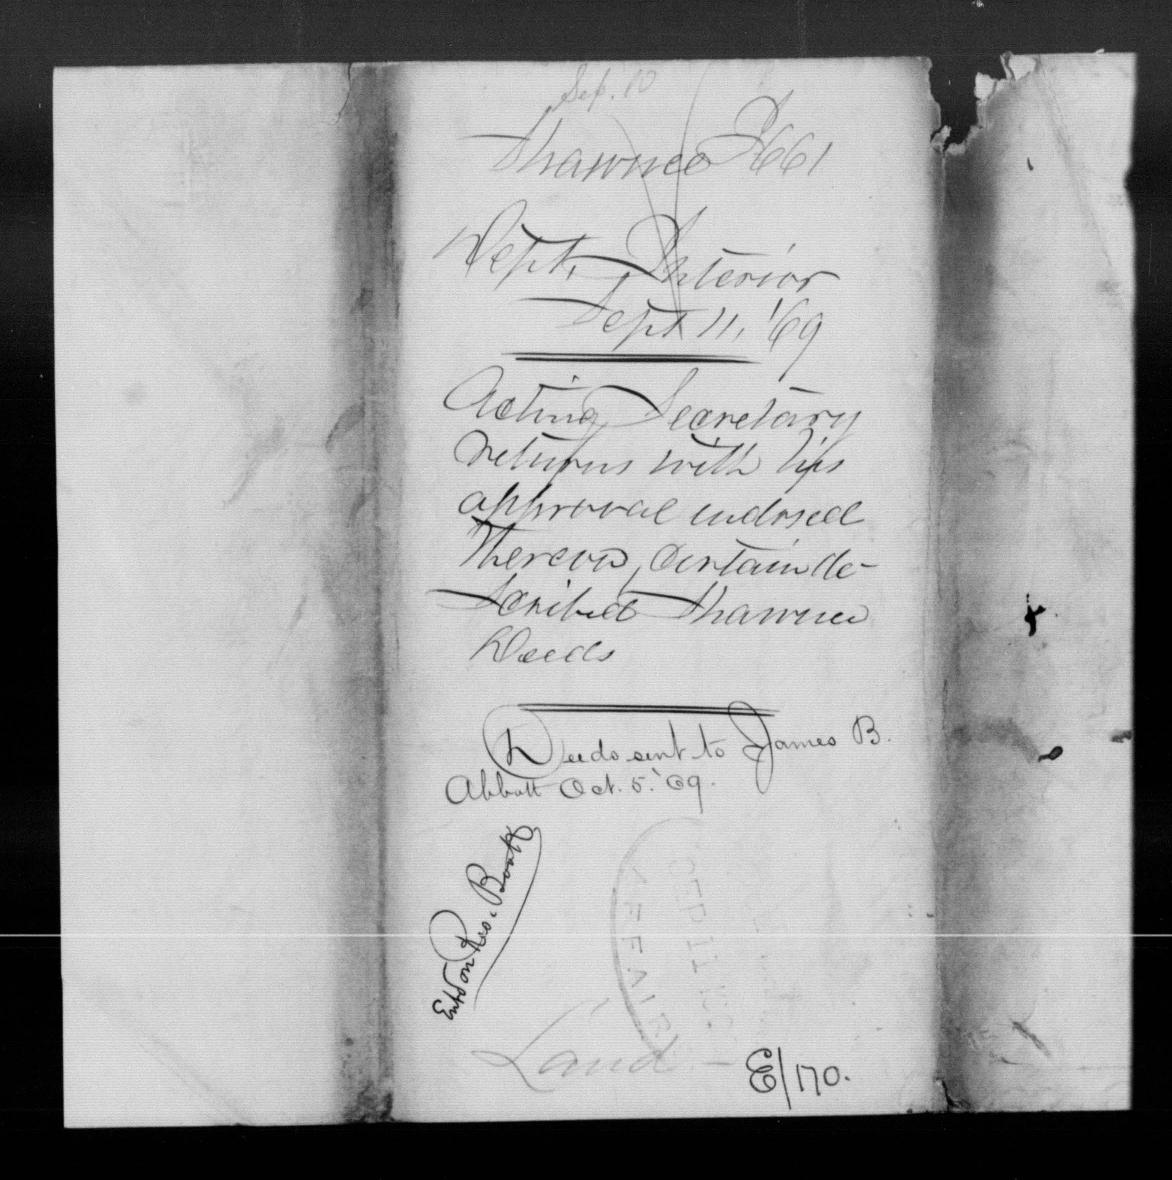 Sep. 10
Shawnee I661
Dept. Interior
Sept 11, '69
Acting Secretary
returns with his
approval indorsed
thereon, certain de-
scribed Shawnee
Deeds
Deeds sent to James B.
Abbott Oct. 5. '69.
Entd on Res. Book
SEP 11
AFFAIR
Land
E/170.